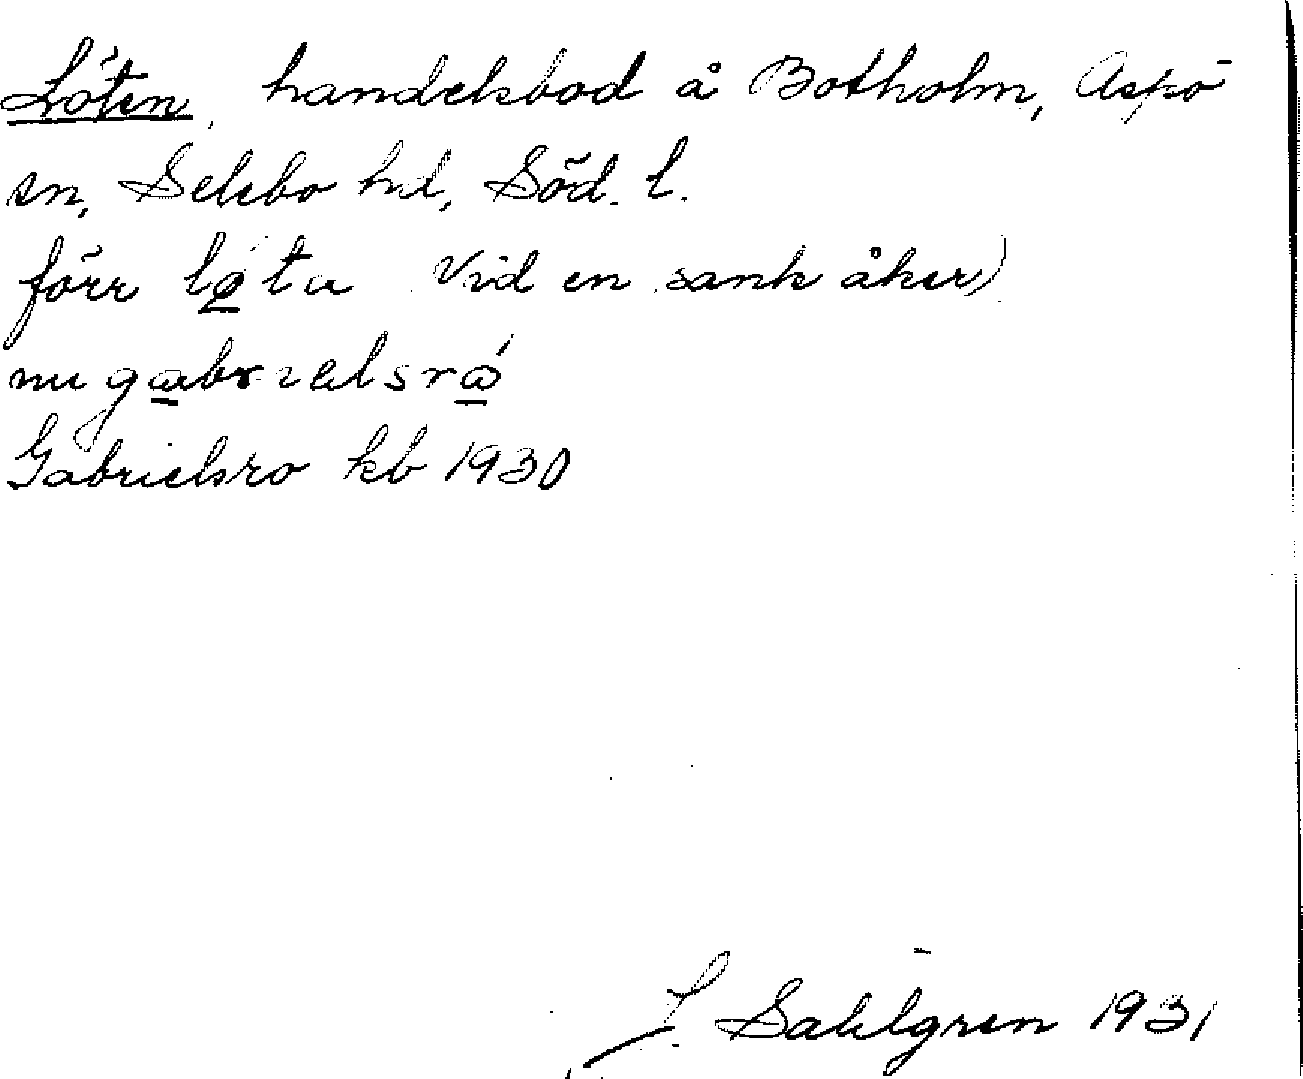 Löten, handelsbod å Botholm, Aspö
sn, Selebo hd, Söd. l.
förr lø̠̀ta Vid en sank åker)
nu ga̠brɩelsrώ̠
Gabrielsro kb 1930
J Sahlgren 1931